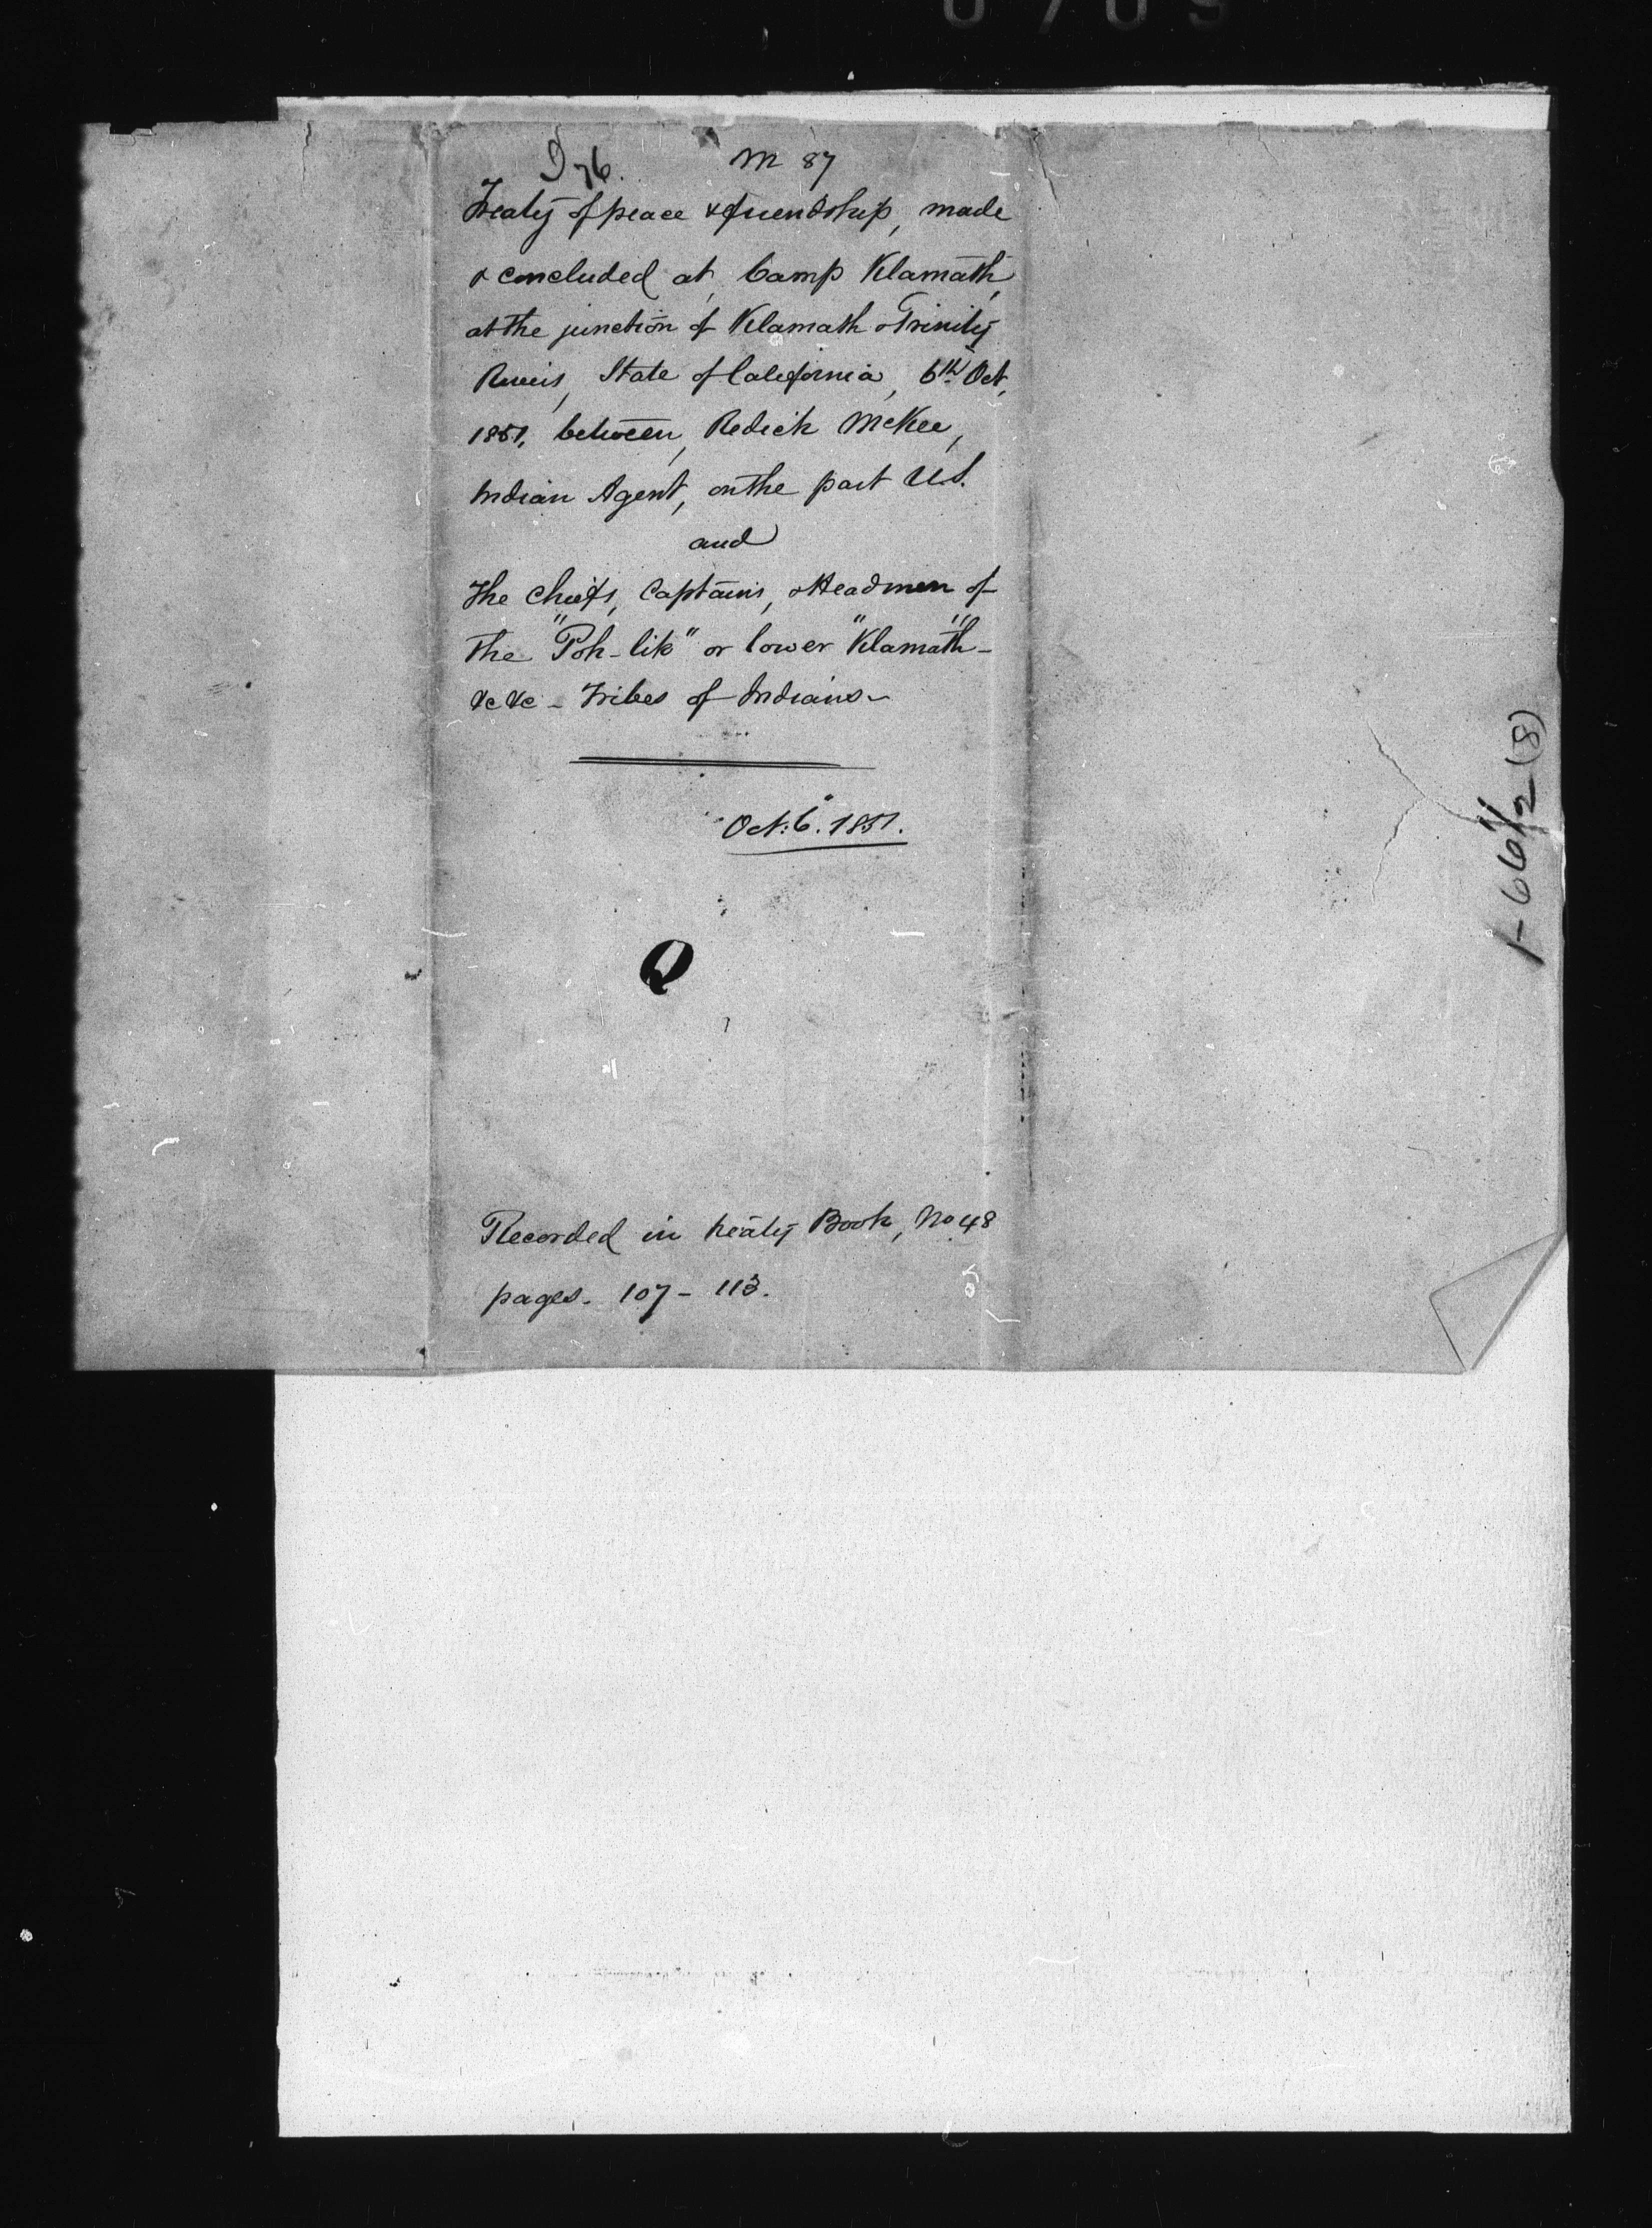 M 87
Treaty of peace & friendship, made
& concluded at Camp Klamath,
at the junction of Klamath & Trinity
Rivers, State of California, 6th Oct,
1851, between, Redick McKee,
Indian Agent, on the part U.S.
and
The Chiefs, Captains, & Headmen of
the "Poh-lik" or lower "Klamath"
&c &c - Tribes of Indians
Oct: 6. 1851.
Q
Recorded in treaty Book, No 48
pages - 107 - 113.
1-66 1/2 (8)